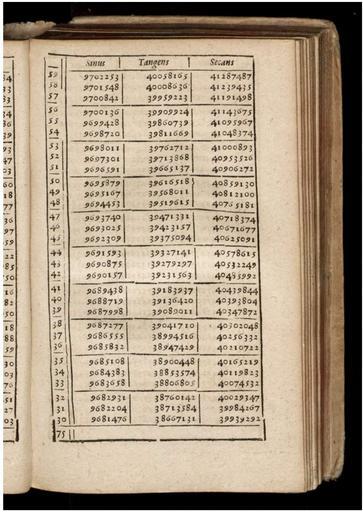 Sinus Tangens Secans
59 9702253 40058165 41287487
58 9701548 40008636 41239435
57 9700842 39959223 41191498
56 9700136 39909924 41143675
55 9699428 39860739 41095967
54 9698720 39811669 41048374
53 9698011 39762712 41000893
52 9697301 39713868 40953526
51 9696591 39665137 40906272
50 9695879 39616518 40859130
49 9695167 39568011 40812100
48 9694453 39519615 40765181
47 9693740 39471331 40718374
46 9693025 39423157 40671677
45 9692309 39375094 40625091
44 9691593 39327141 40578615
43 9690875 39279297 40532249
42 9690157 39231563 40485992
41 9689438 39183937 40439844
40 9688719 39136420 40393804
39 9687998 39089011 40347872
38 9687277 39041710 40302048
37 9686555 38994516 40256332
36 9685832 38947429 40210722
35 9685108 38900448 40165219
34 9684383 38853574 40119823
33 9683658 38806805 40074532
32 9682931 38760142 40029347
31 9682204 38713584 39984267
30 9681476 38667131 39939292
75